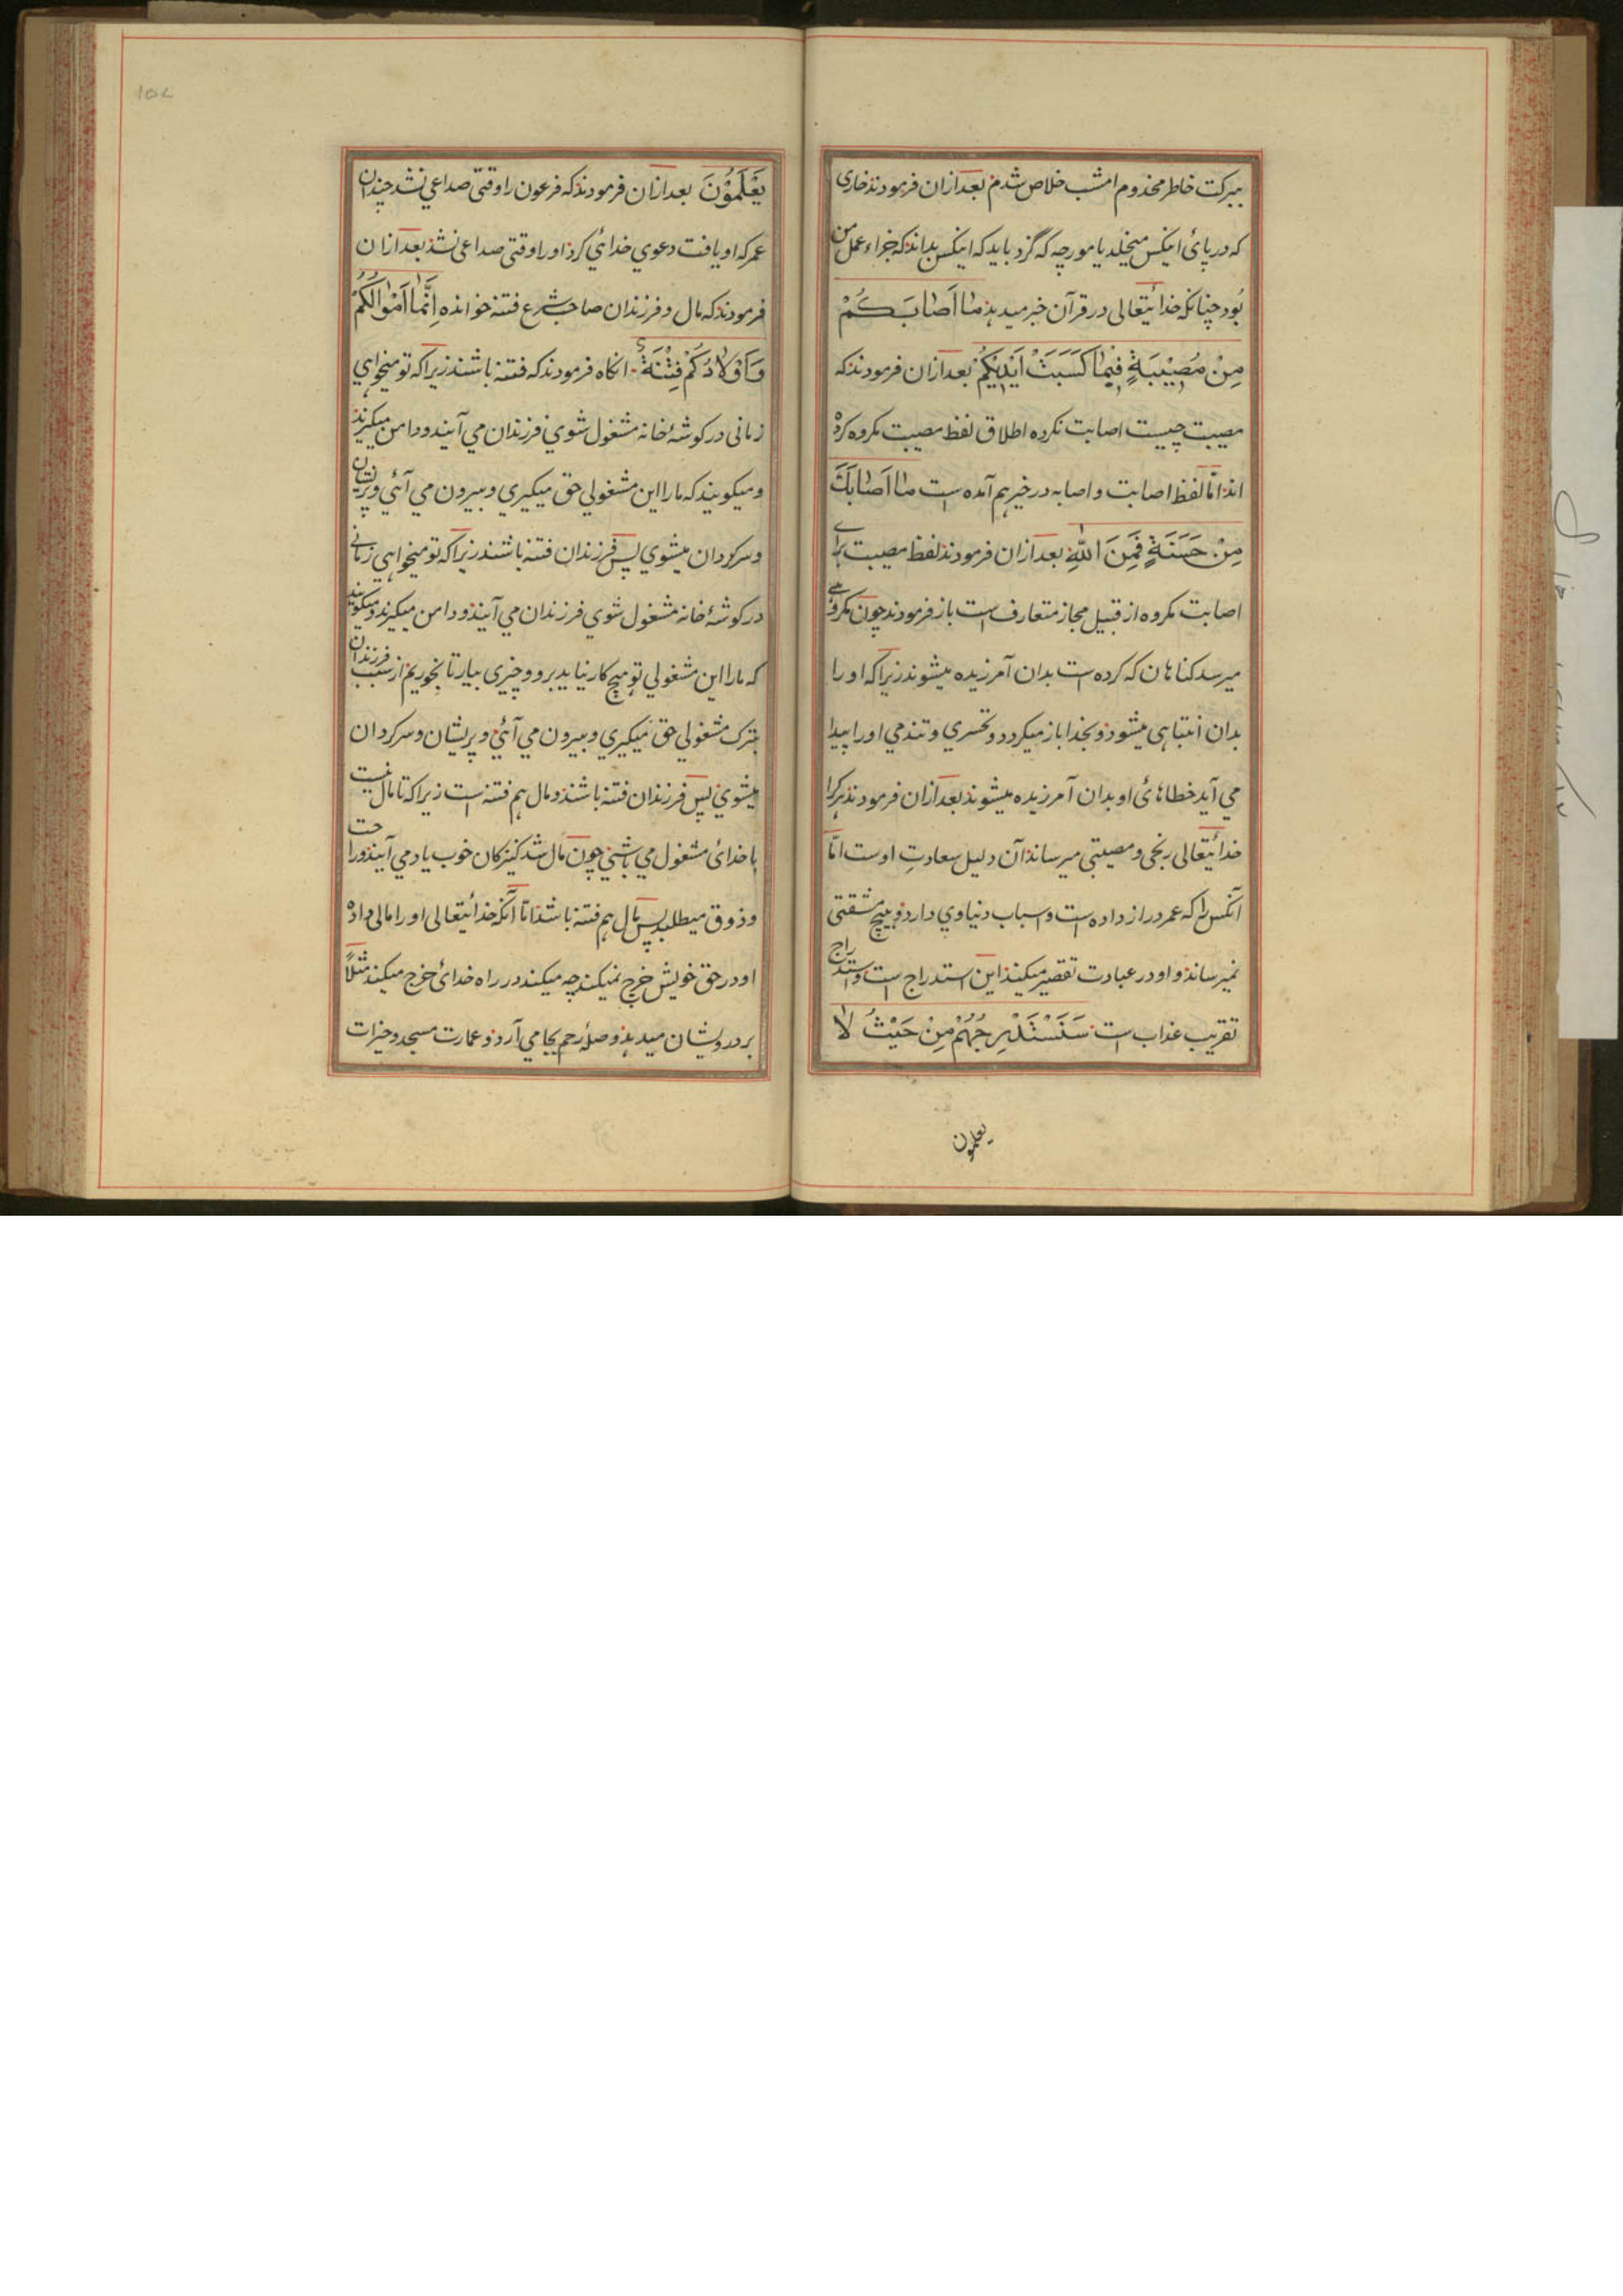 ببرکت خاطر مخدوم امشب خلاص شدم بعد ازان فرمودند خاری
که در پائ اینکس میخلد یا مورچه که گزد باید که اینکس بداند که جزاء عمل من
بود چنانکه خدائیتعالی در قرآن خبر میدهد مَا اَصَابَكُمْ
مِنْ مُصِيْبَةٍ فَبِمَا كَسَبَتْ اَيْدِيْكُمْ بعد ازان فرمودند که
مصیبت چیست اصابت نکرده اطلاق لفظ مصیبت مکروه کرده
اند امّا لفظ اصابت و اصابه در خیر هم آمده است مَا اَصَابَكَ
مِنْ حَسَنَةٍ فَمِنَ اللّٰهِ بعد ازان فرمودند لفظ مصیبت برای
اصابت مکروه از قبیل مجاز متعارف است باز فرمودند چون مکروهے
میرسد کناهان که کرده است بدان آمرزیده میشوند زیراکه او را
بدان انتباهی میشود و بخدا باز میکردد و تحسری و تندمی او را پیدا
می آید خطاهائ او بدان آمرزیده میشوند بعد ازان فرمودند هرکرا
خدائیتعالی رنجی و مصیبتی میرساند آن دلیل سعادتِ اوست امّا
آنکس را که عمر دراز داده است و اسباب دنیاوي دارد و هیچ مشقتی
نمیرساند و او در عبادت تقصیر میکند این استدراج است و استدراج
تقریب عذاب است سَنَسْتَدْرِجُهُمْ مِنْ حَيْثُ لَا
یعلمون
يَعْلَمُوْنَ بعد ازان فرمودند که فرعون را وقتی صداعي نشد چندان
عمر که او یافت دعوي خدائي کرد او را وقتی صداعی نشد بعد ازان
فرمودند که مال و فرزندان صاحب شرع فتنه خوانده اِنَّمَا اَمْوَالُكُمْ
وَاَوْلَادُكُمْ فِتْنَةٌ انکاه فرمودند که فتنه باشند زیراکه تو میخواهي
زمانی در کوشۀ خانه مشغول شوي فرزندان مي آیند و دامن میکیرند
و میکویند که مارا این مشغولي حق میکیري و بیرون مي آئي و پریشان
و سرکردان میشوي پس فرزندان فتنه باشند زیراکه تو میخواهي زمانے
در کوشۀ خانه مشغول شوي فرزندان مي آیند و دامن میکیرند و میکویند
که مارا این مشغولي تو هیچ کار نیاید برو و چیزی بیار تا بخوریم از سبب فرزندان
بترک مشغولي حق میکیري و بیرون مي آئي و پریشان و سرکردان
میشوي پس فرزندان فتنه باشند و مال هم فتنه است زیراکه تا مال نیست
با خدائ مشغول مي باشي چون مال شد کنیزکان خوب یاد مي آیند و راحت
و ذوق میطلبد پس مال هم فتنه باشد امّا آنکه خدائیتعالی او را مالی داده
او در حق خویش خرج نمیکند چه میکند در راه خدائ خرج میکند مثلاً
بر درویشان میدهد و صلۀ رحم بجا مي آرد و عمارت مسجد و خیرات